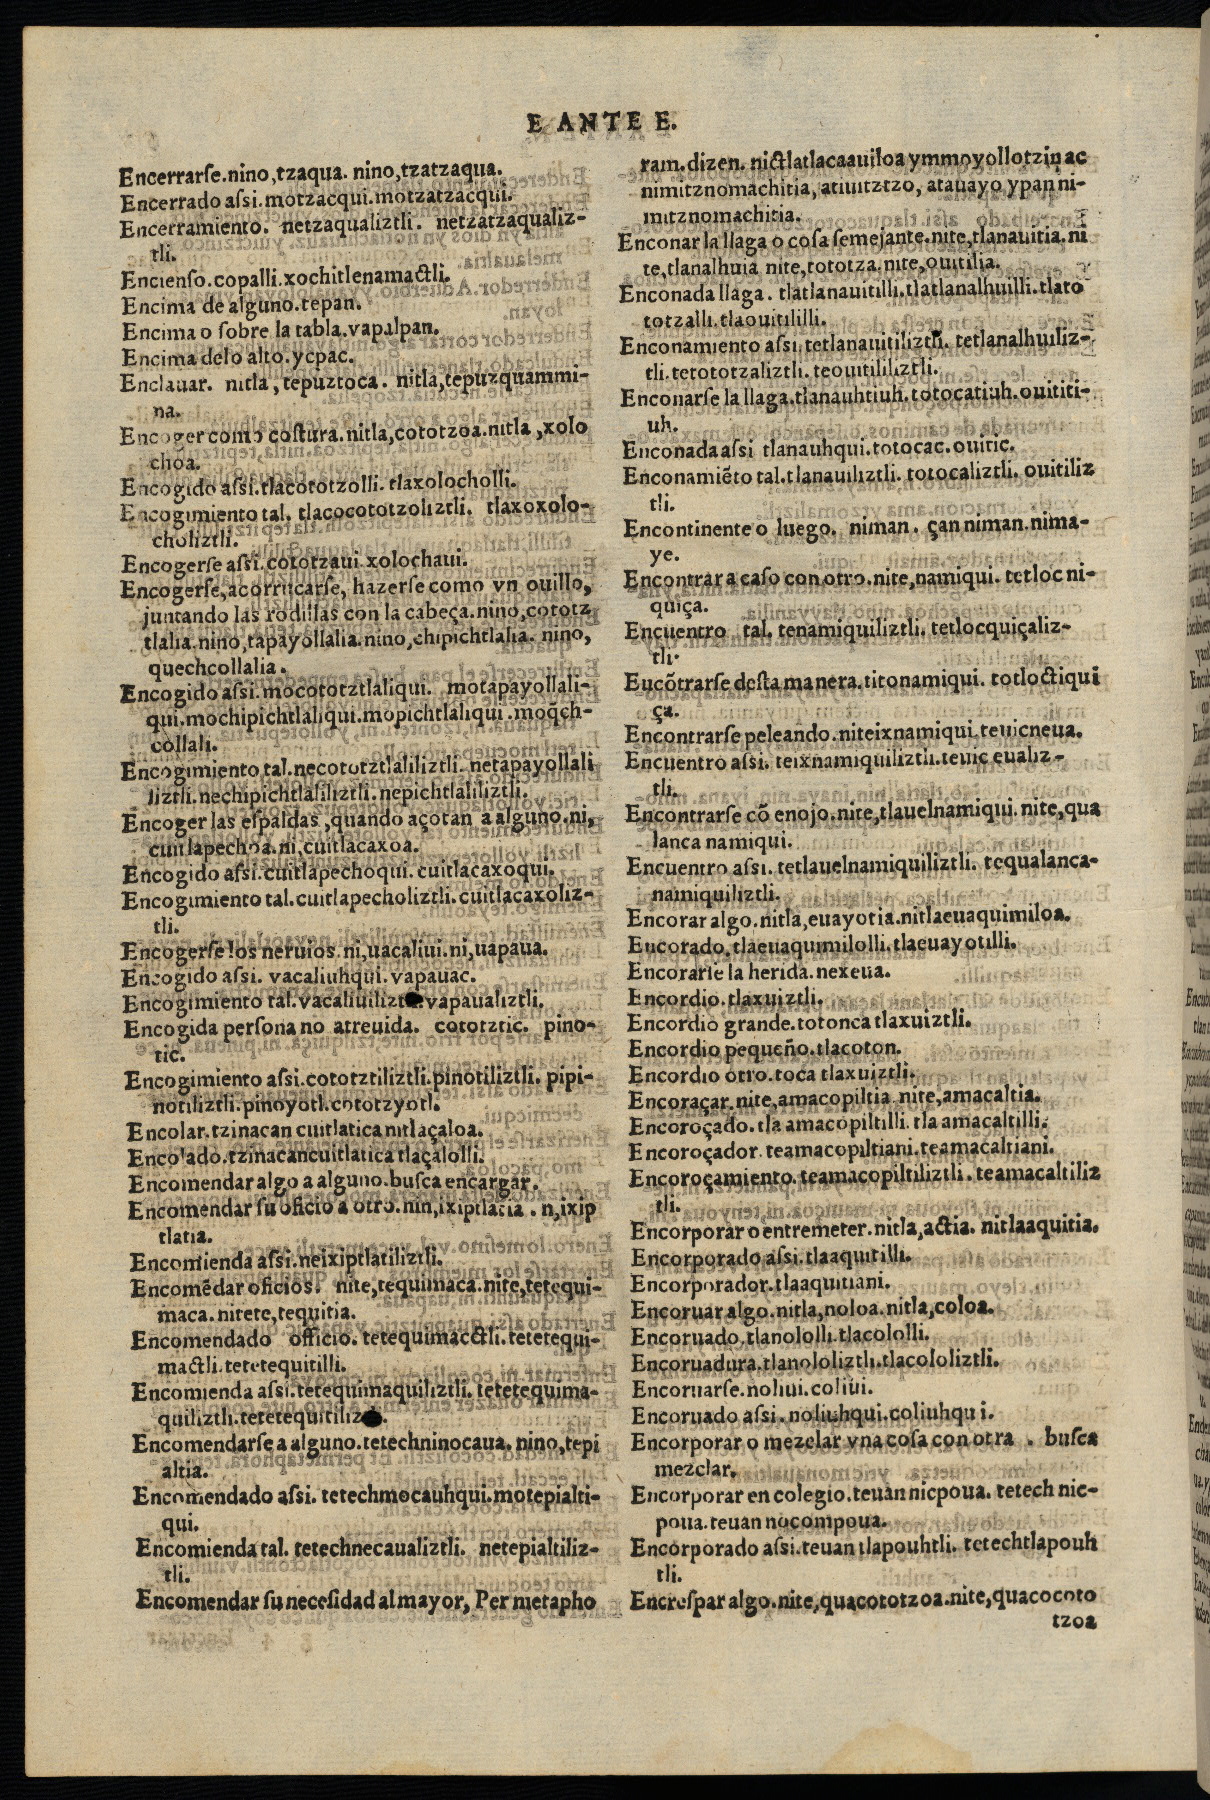 E ANTE E.
Encerrarſe.nino,tzaqua. nino,tzatzaqua.
Encerrado aſsi.motzacqui.motzatzacqui.
Encerramiento. netzaqualiztli. netzatzaqualiz-
tli.
Encienſo.copalli.xochitlenamactli.
Encima de alguno.tepan.
Encima o ſobre la tabla.vapalpan.
Encima delo alto.ycpac.
Enclauar. nitla, tepuztoca. nitla,tepuzquammi-
na.
Encoger como coſtura.nitla,cototzoa.nitla,xolo
choa.
Encogido aſsi.tlacototzolli. tlaxolocholli.
Encogimiento tal. tlacocototzoliztli. tlaxoxolo-
choliztli.
Encogerſe aſsi.cototzaui.xolochaui.
Encogerſe,acorrucarſe, hazerſe como vn ouillo,
juntando las rodillas con la cabeça.nino,cototz
tlalia.nino,tapayollalia.nino,chipichtlalia. nino,
quechcollalia.
Encogido aſsi.mocototztlaliqui. motapayollali-
qui.mochipichtlaliqui.mopichtlaliqui.moq̃ch-
collali.
Encogimiento tal.necototztlaliliztli. netapayollali
liztli.nechipichtlaliliztli.nepichtlaliliztli.
Encoger las eſpaldas,quando açotan a alguno.ni,
cuitlapechoa.ni,cuitlacaxoa.
Encogido aſsi.cuitlapechoqui.cuitlacaxoqui.
Encogimiento tal.cuitlapecholiztli.cuitlacaxoliz-
tli.
Encogerſe los neruios.ni,uacaliui.ni,uapaua.
Encogido aſsi. vacaliuhqui.vapauac.
Encogimiento tal. vapaualiztli.
Encogida perſona no atreuida. cototztic. pino-
tic.
Encogimiento aſsi.cototztiliztli.pinotiliztli. pipi-
notiliztli.pinoyotl.cototzyotl.
Encolar.tzinacan cuitlatica nitlaçaloa.
Encolado.tzinacancuitlatica tlaçalolli.
Encomendar algo a alguno.buſca encargar.
Encomendar ſu oficio a otro.nin,ixiptlatia.n,ixip
tlatia.
Encomienda aſsi.neixiptlatiliztli.
Encomẽdar oficios. nite,tequimaca.nite,tetequi-
maca.nitete,tequitia.
Encomendado officio. tetequimacctli.tetetequi-
mactli.tetetequitilli.
Encomienda aſsi.tetequimaquiliztli. tetetequima-
quiliztli.
Encomendarſe a alguno.tetechninocaua. nino,tepi
altia.
Encomendado aſsi. tetechmocauhqui.motepialti-
qui.
Encomienda tal. tetechnecaualiztli. netepialtiliz-
tli.
Encomendar ſu neceſidad al mayor, Per metapho
ram.dizen. nictlatlacaauiloa ymmoyollotzin ac
nimitznomachitia, atiuitztzo, atauayo ypan ni-
mitznomachitia.
Enconar la llaga o coſa ſemejante.nite,tlanauitia.ni
te,tlanalhuia nite,tototza.nite,ouitilia.
Enconada llaga. tlatlanauitilli.tlatlanalhuilli.tlato
totzalli.tlaouitililli.
Enconamiento aſsi.tetlanauitiliztli. tetlanalhuiliz-
tli.tetototzaliztli. teouitililiztli.
Enconarſe la llaga.tlanauhtiuh.totocatiuh.ouititi-
uh.
Enconada aſsi tlanauhqui.totocac.ouitic.
Enconamiẽto tal.tlanauiliztli. totocaliztli. ouitiliz
tli.
Encontinente o luego. niman. çan niman.nima-
ye.
Encontrar a caſo con otro.nite,namiqui. tetloc ni-
quiça.
Encuentro tal. tenamiquiliztli. tetlocquiçaliz-
tli.
Eucõtrarſe deſta manera.titonamiqui. totloctiqui
ça.
Encontrarſe peleando.niteixnamiqui.teuicneua.
Encuentro aſsi. teixnamiquiliztli.teuic eualiz-
tli.
Encontrarſe cõ enojo.nite,tlauelnamiqui.nite,qua
lanca namiqui.
Encuentro aſsi. tetlauelnamiquiliztli. tequalanca-
namiquiliztli.
Encorar algo.nitla,euayotia.nitlaeuaquimiloa.
Eucorado.tlaeuaquimilolli.tlaeuayotilli.
Encorarſe la herida.nexeua.
Encordio.tlaxuiztli.
Encordio grande.totonca tlaxuiztli.
Encordio pequeño.tlacoton.
Encordio otro.toca tlaxuiztli.
Encoraçar.nite,amacopiltia.nite,amacaltia.
Encoroçado.tla amacopiltilli.tla amacaltilli.
Encoroçador.teamacopiltiani.teamacaltiani.
Encoroçamiento.teamacopiltiliztli.teamacaltiliz
tli.
Encorporar o entremeter.nitla,actia. nitlaaquitia.
Encorporado aſsi.tlaaquitilli.
Encorporador.tlaaquitiani.
Encoruar algo.nitla,noloa.nitla,coloa.
Encoruado.tlanololli.tlacololli.
Encoruadura.tlanololiztli.tlacololiztli.
Encoruarſe.noliui.coliui.
Encoruado aſsi.noliuhqui.coliuhqui.
Encorporar o mezclar vna coſa con otra . buſca
mezclar.
Encorporar en colegio.teuan nicpoua. tetech nic-
poua.teuan nocompoua.
Encorporado aſsi.teuan tlapouhtli. tetechtlapouh
tli.
Encreſpar algo.nite,quacototzoa.nite,quacocoto
tzoa